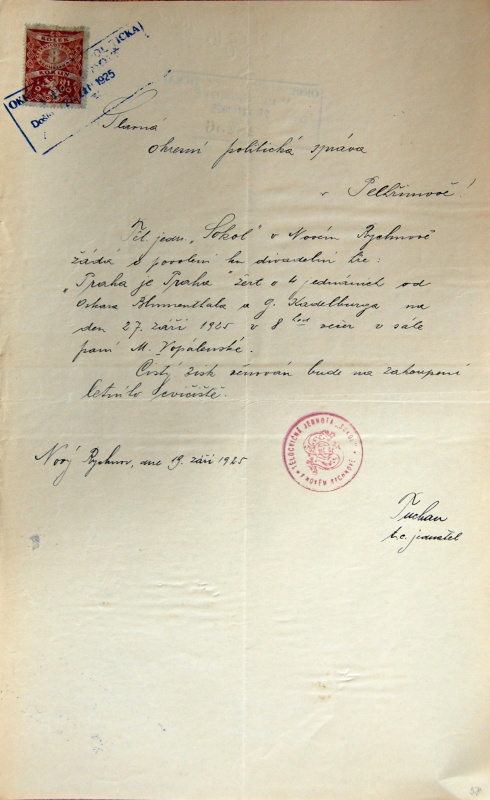 KOLEK
KOLKU
OKRESNÍ POLITICKÁ SPRÁVA
Došlo ZÁŘÍ 1925
Slavná
okresní politická správa
v Pelhřimově!
Těl. jedn. „Sokol" v Novém Rychnově
žádá o povolení ku divadelní hře:
„Praha je Praha" žert o 4 jednáních od
Oskara Blumenthala a G. Kadelburga na
den 27. září 1925 v 8 hod večer v sále
paní M. Vopálenské.
Čistý zisk věnován bude na zakoupení
letního cvičiště.
TĚLOCVIČNÁ JEDNOTA „SOKOL"
V NOVÉM RYCHNOVĚ
Nový Rychnov, dne 19. září 1925
Tuchan
t. č. jednatel
58